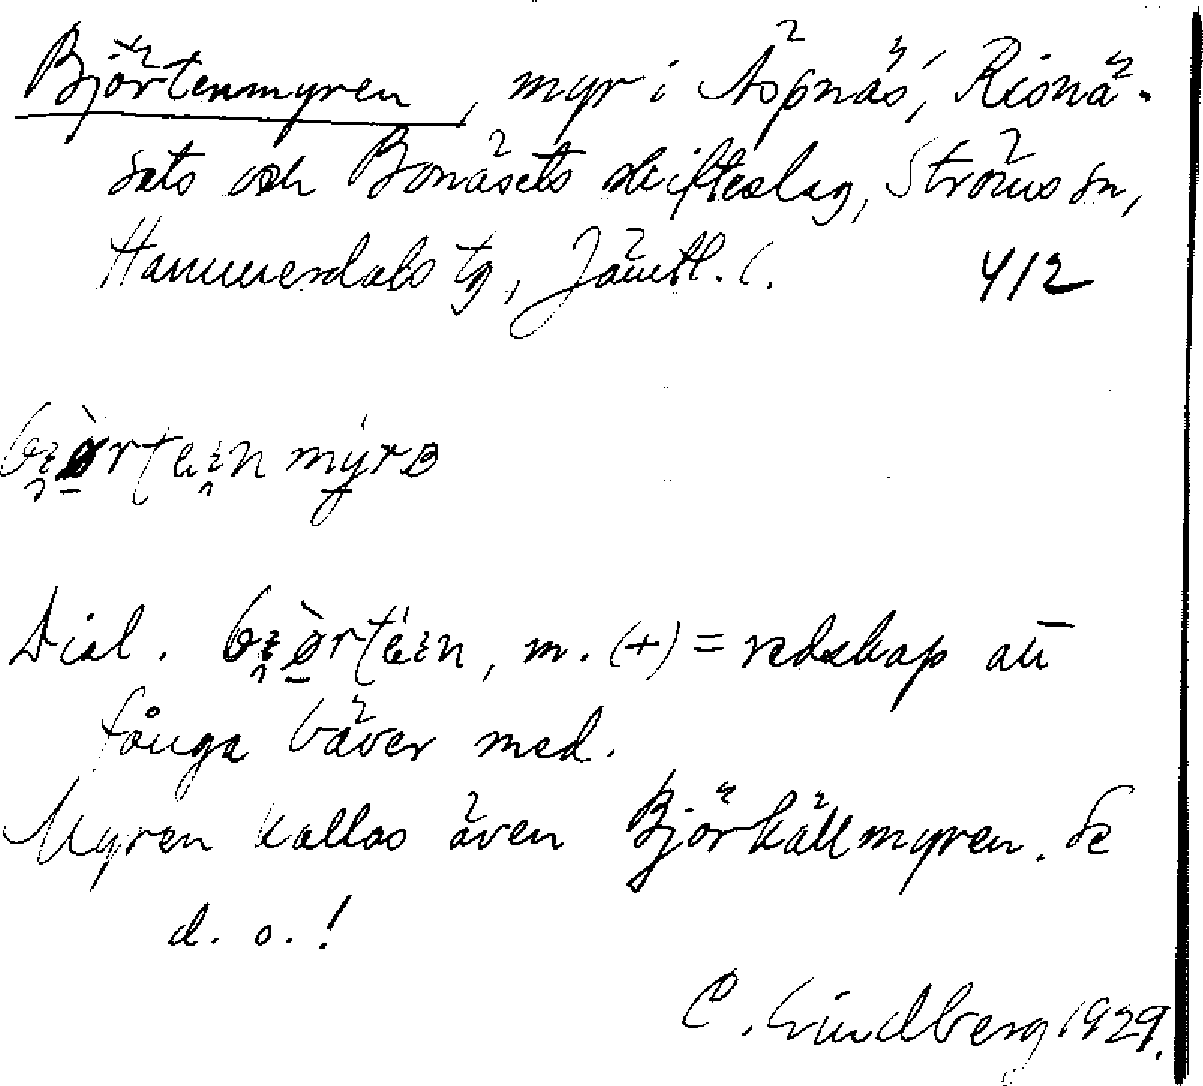 Björtenmyren, myr i Aspnäs, Risnä-
sets och Bonäsets skifteslag, Ströms sn,
Hammerdals tg, Jämtl. l. 412
myrɞ
Dial. , m. (+) = redskap att
fånga bäver med.
Myren kallas även Björkällmyren. Se
d. o.!
C. Lindberg 1929.